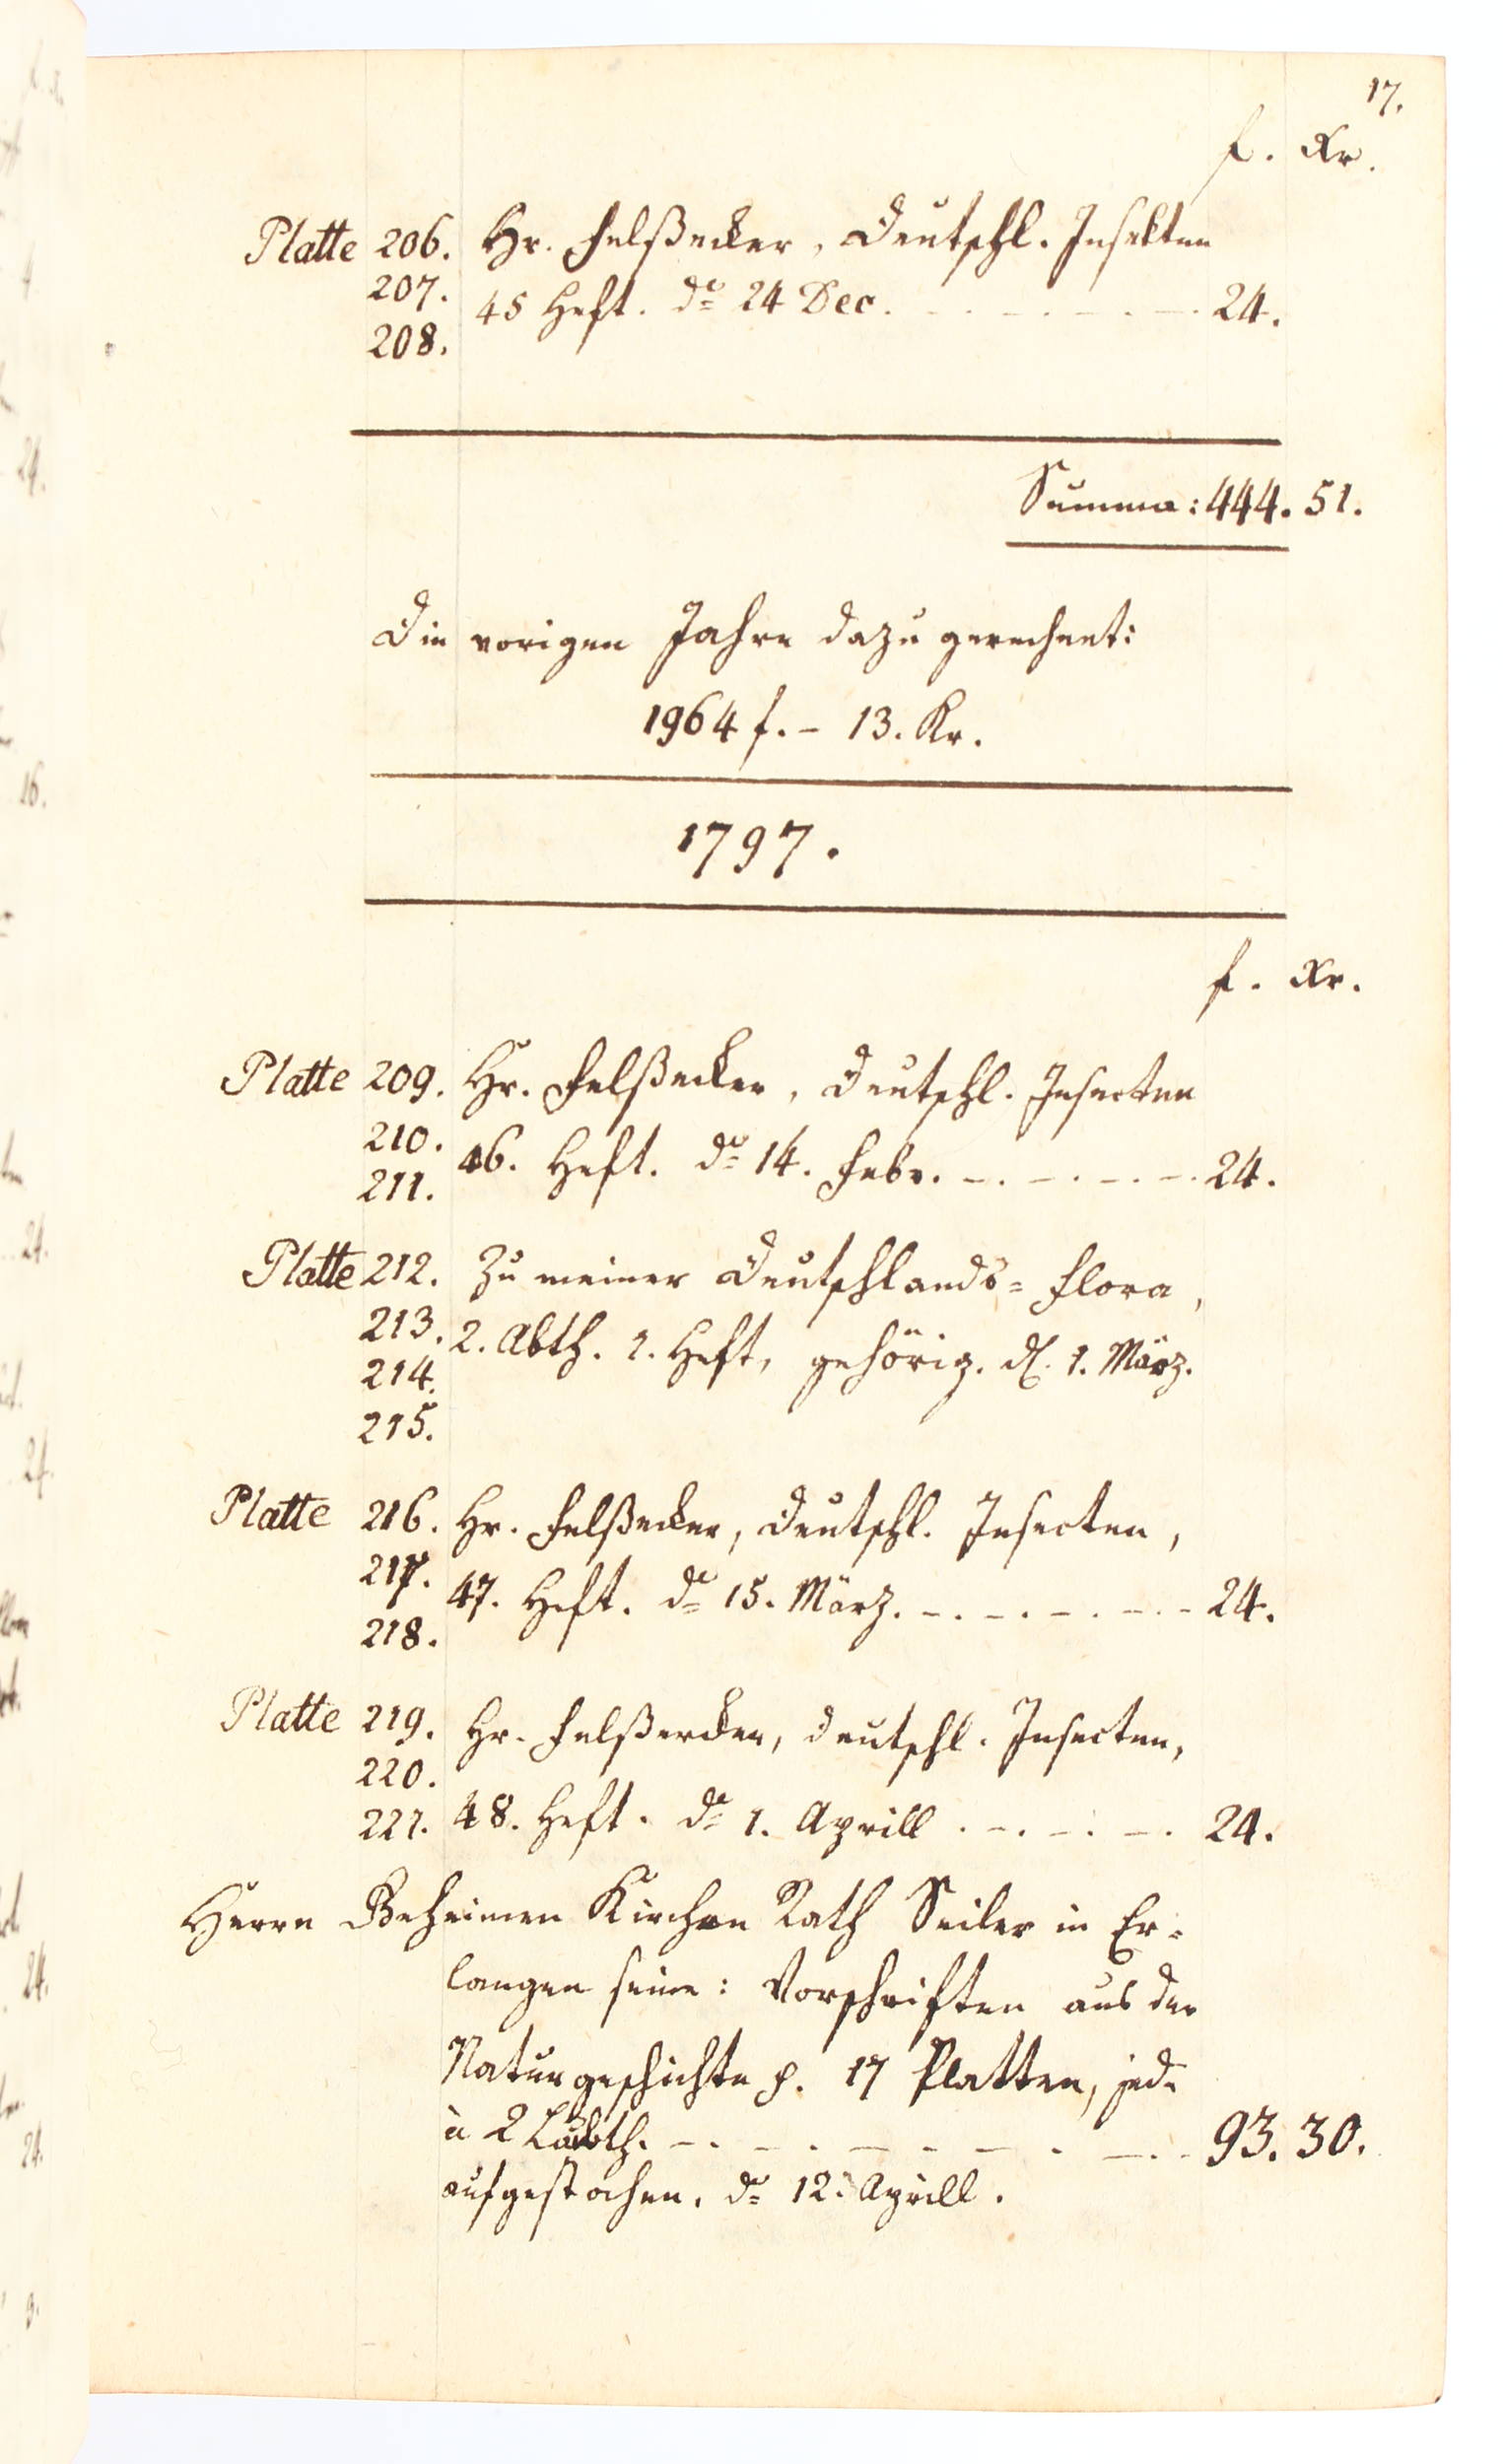 17.
f. Xr.
Platte 206. Hr. Felßecker, Deutschl. Insekten
207. 45 Heft. do 24 Dec. - . - . - . - . 24.
208.
Summa: 444. 51.
Die vorigen Jahre dazu gerechnet:
1964 f. - 13. Kr.
1797.
f. Xr.
Platte 209. Hr. Felßecker, Deutschl. Insecten
210. 46. Heft. do 14. Febr. - . - . - . - . 24.
211.
Platte 212. Zu meiner Deutschlands= Flora,
213. 2. Abth. 1. Heft, gehörig. d. 1. März.
214.
215.
Platte 216. Hr. Felßecker, Deutschl. Insecten,
217. 47. Heft. do 15. März. - . - . - . - . - 24.
218.
Platte 219. Hr. Felßecker, Deutschl. Insecten,
220.
221. 48. Heft. do 1. Aprill . - . - . - . 24.
Herrn Geheimen Kirchen Rath Seiler in Er=
langen seine: Vorschriften aus der
Naturgeschichte p. 17 Platten, jede
à 2 Laubth. - . - . - . - . - . - 93. 30.
aufgestochen. do 12. Aprill.